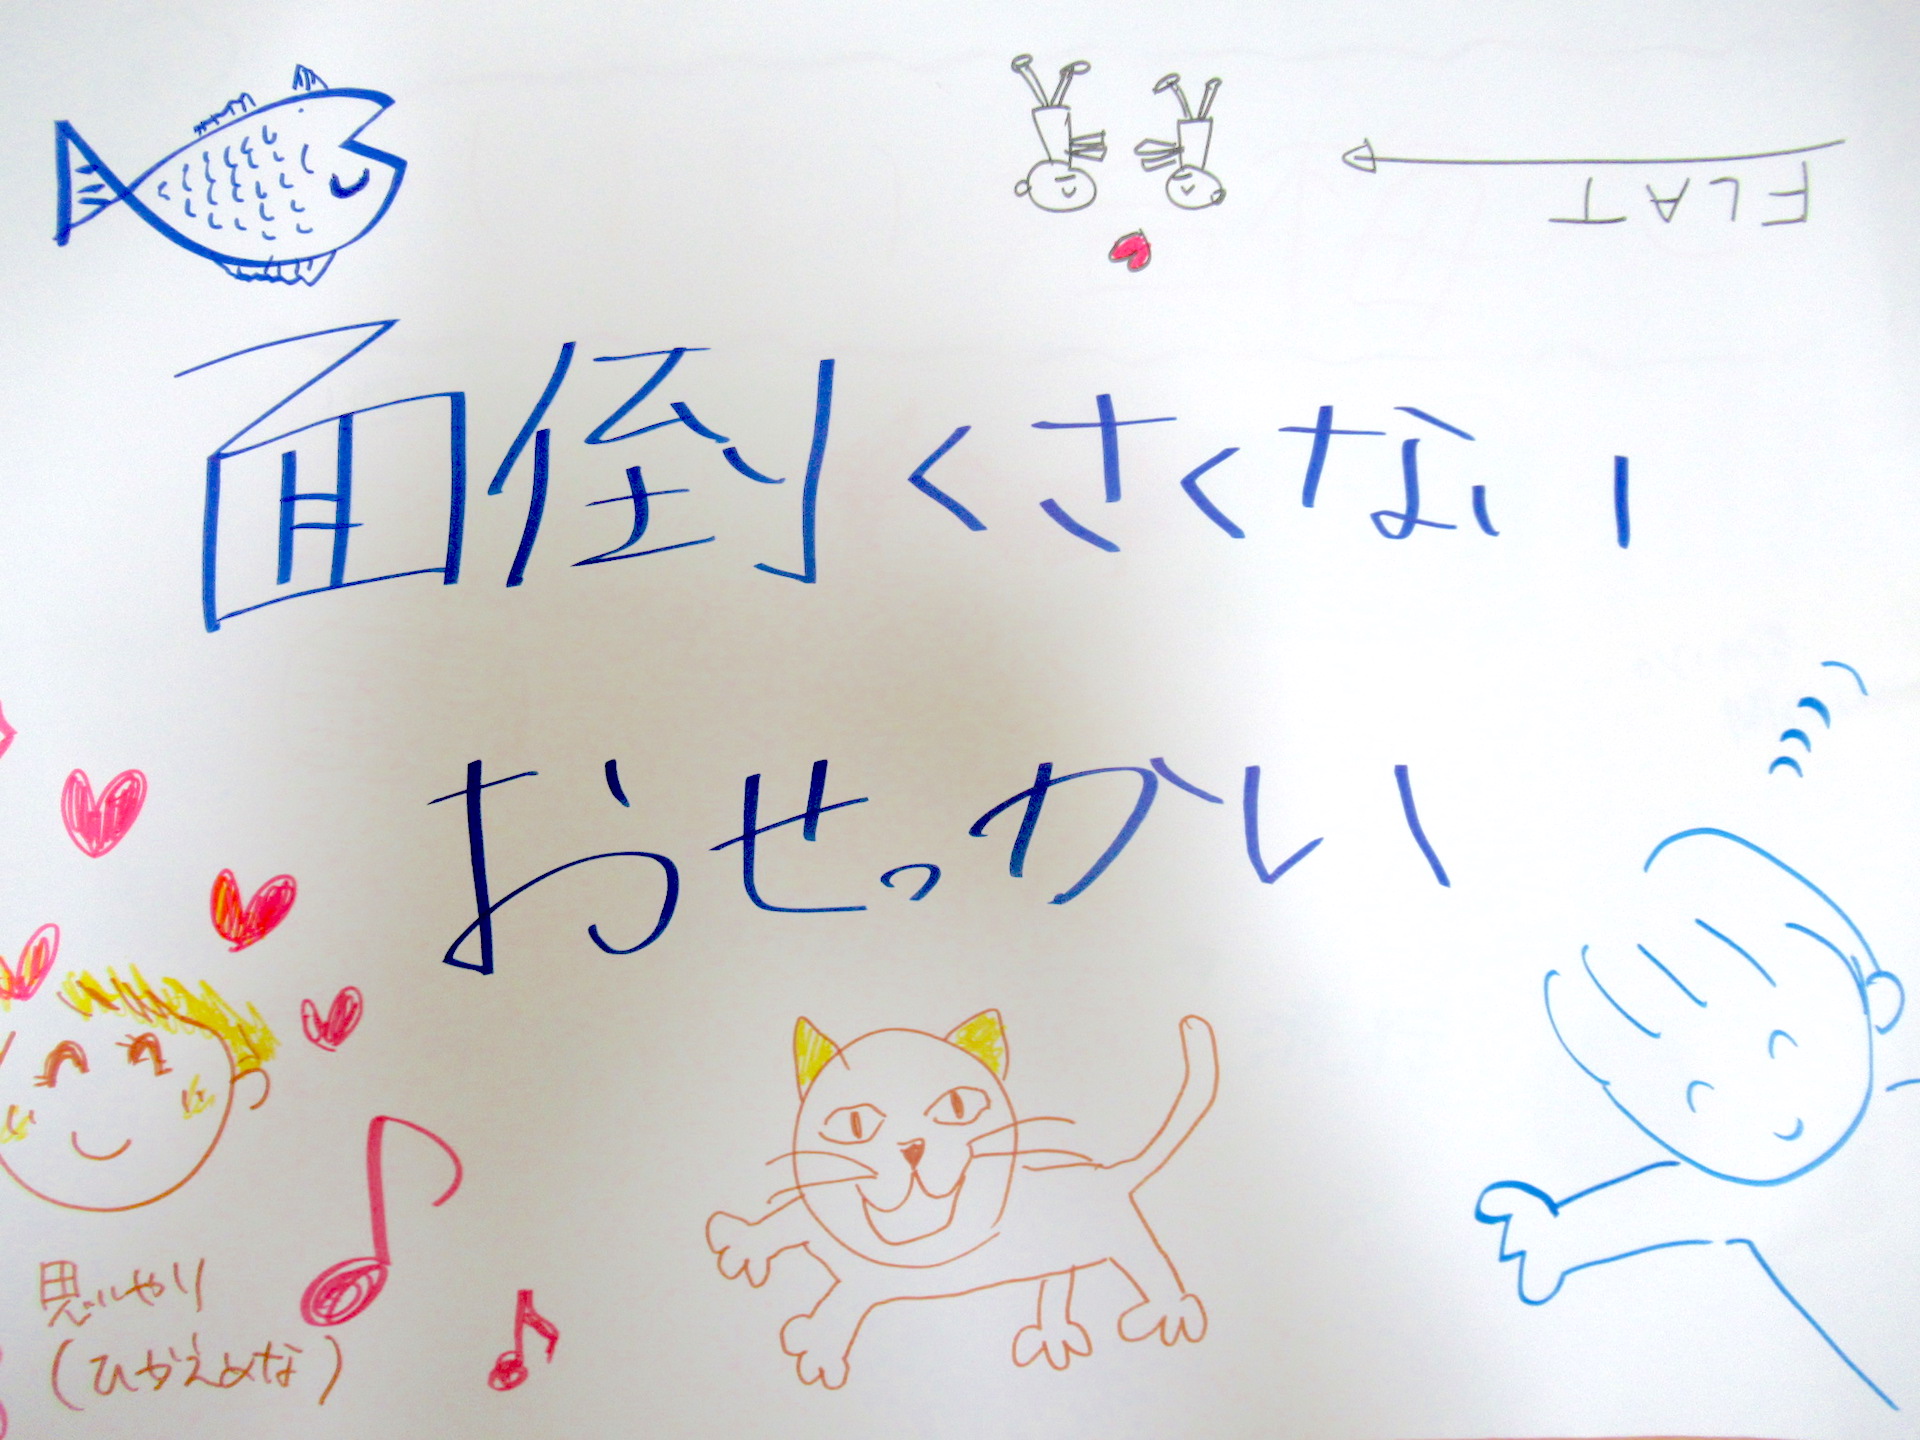 FLAT
面倒くさくない
おせっかい
思いやり
(ひかえめな)